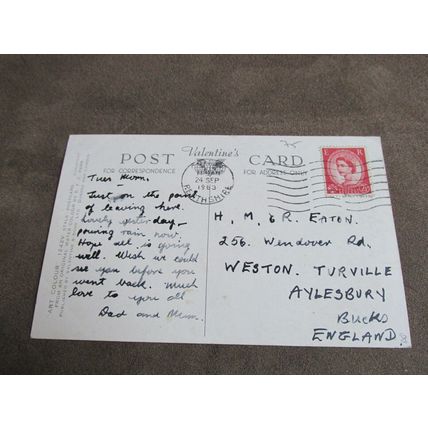 POST Valentine's CARD
FOR CORRESPONDENCE FOR ADDRESS ONLY
24 SEP
1963
E R
Tues
Just on the point
of leaving here.
Lovely yesterday –
pouring rain now.
Hope all is going
well. Wish we could
see you before you
went back. Much
love to you all
Dad and Mum.
H, M, & R. EATON.
256. Wendover Rd,
WESTON. TURVILLE
AYLESBURY
Bucks
ENGLAND.
ART COLOUR